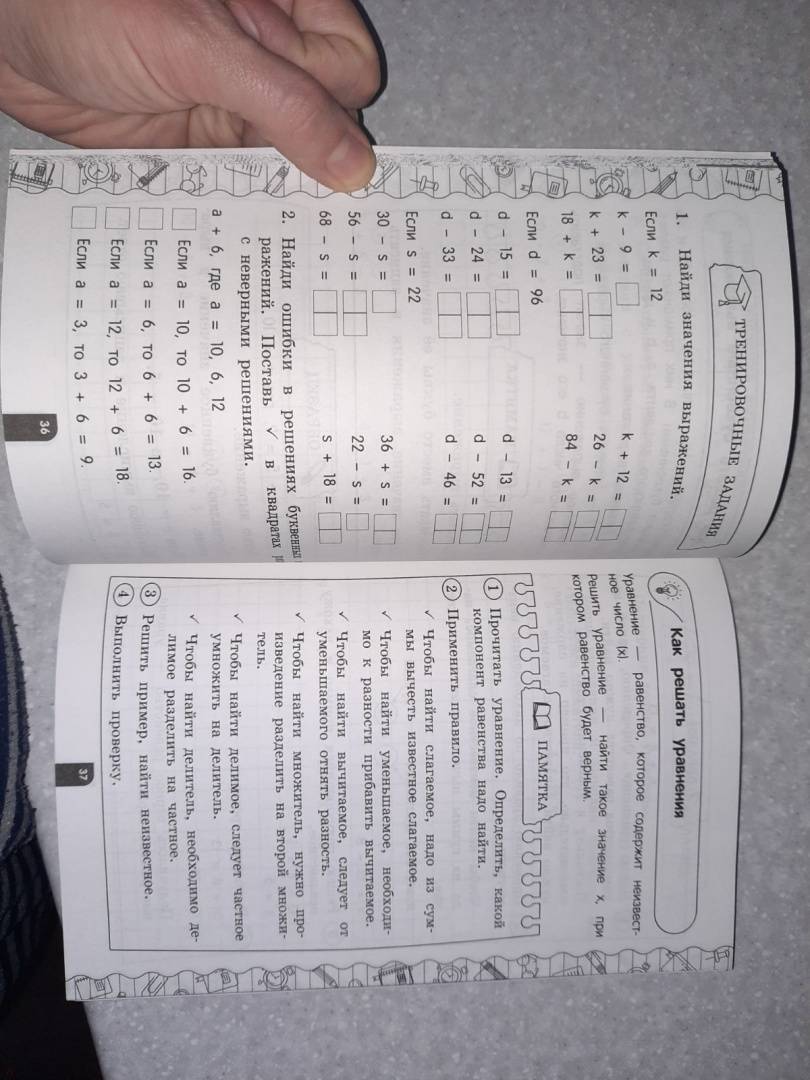 ТРЕНИРОВОЧНЫЕ ЗАДАНИЯ
1. Найди значения выражений.
Если k = 12
k – 9 =
k + 12 =
k + 23 =
26 – k =
18 + k =
84 – k =
Если d = 96
d – 15 =
d – 13 =
d – 24 =
d – 52 =
d – 33 =
d – 46 =
Если s = 22
30 – s =
36 + s =
56 – s =
22 – s =
68 – s =
s + 18 =
2. Найди ошибки в решениях буквенных
ражений. Поставь ✓ в квадратах
с неверными решениями.
a + 6, где a = 10, 6, 12
Если a = 10, то 10 + 6 = 16.
Если a = 6, то 6 + 6 = 13.
Если a = 12, то 12 + 6 = 18.
Если a = 3, то 3 + 6 = 9.
36
Как решать уравнения
Уравнение — равенство, которое содержит неизвест-
ное число (x).
Решить уравнение — найти такое значение x, при
котором равенство будет верным.
ПАМЯТКА
1 Прочитать уравнение. Определить, какой
компонент равенства надо найти.
2 Применить правило.
✓ Чтобы найти слагаемое, надо из сум-
мы вычесть известное слагаемое.
✓ Чтобы найти уменьшаемое, необходи-
мо к разности прибавить вычитаемое.
✓ Чтобы найти вычитаемое, следует от
уменьшаемого отнять разность.
✓ Чтобы найти множитель, нужно про-
изведение разделить на второй множи-
тель.
✓ Чтобы найти делимое, следует частное
умножить на делитель.
✓ Чтобы найти делитель, необходимо де-
лимое разделить на частное.
3 Решить пример, найти неизвестное.
4 Выполнить проверку.
37